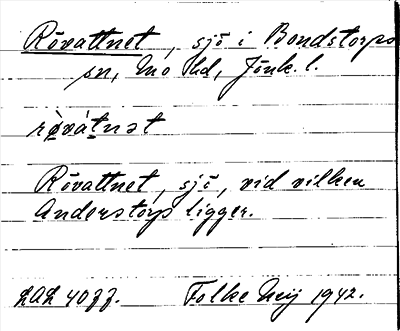 Rövattnet, sjö i Bondstorps
sn, Mo hd, Jönk. l.
rø̀vátnət
Rövattnet, sjö, vid vilken
Anderstorp ligger.
LAL 4077.
Folke Meij 1942.